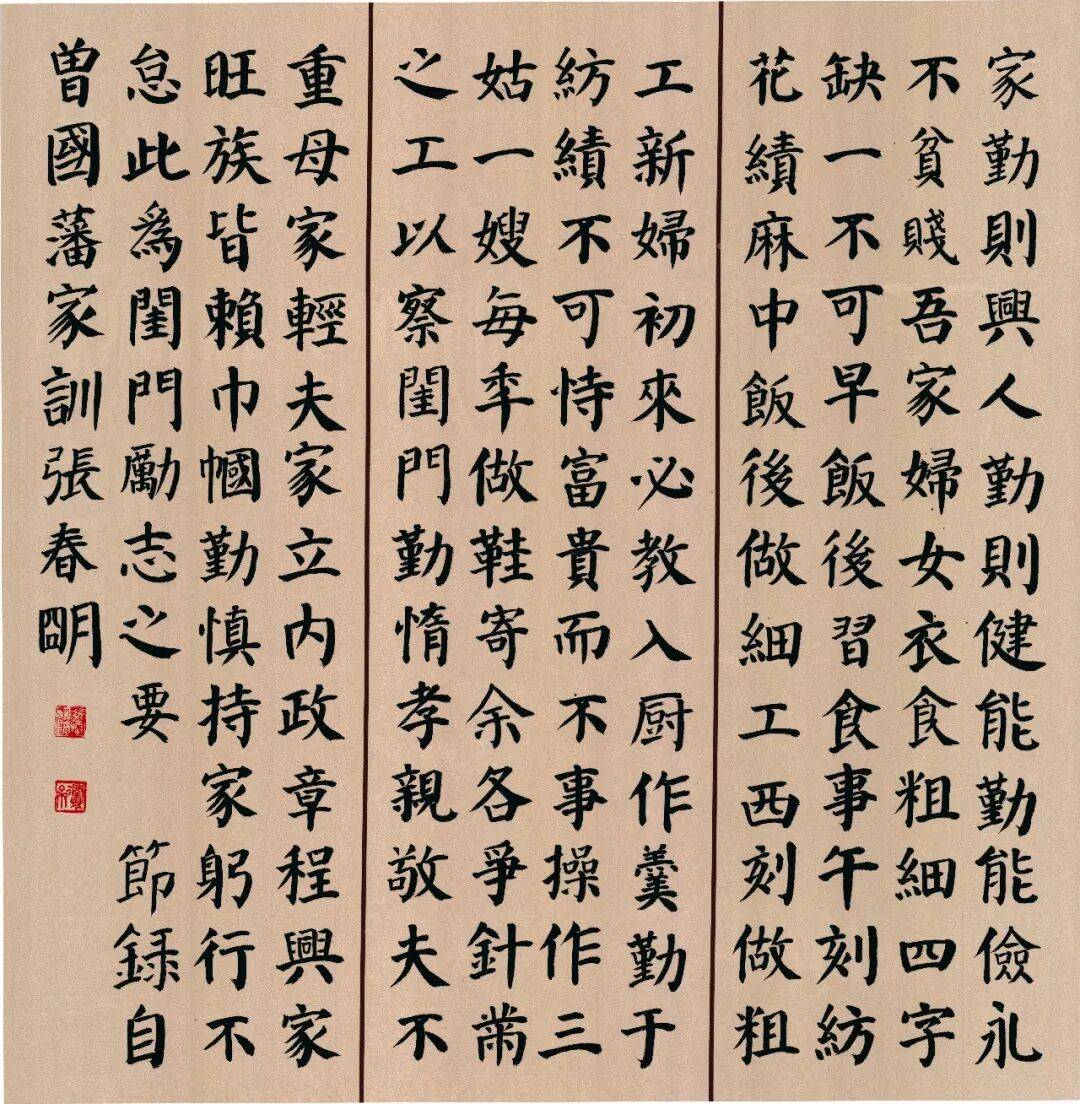 家勤則興人勤則健能勤能儉永
不貧賤吾家婦女衣食粗細四字
缺一不可早飯後習食事午刻紡
花績麻中飯後做細工西刻做粗
工新婦初來必教入厨作羹勤于
紡績不可恃富貴而不事操作三
姑一嫂每年做鞋寄余各爭針黹
之工以察閨門勤惰孝親敬夫不
重母家輕夫家立内政章程興家
旺族皆賴巾幗勤慎持家躬行不
怠此為閨門勵志之要 節録自
曾國藩家訓張春明